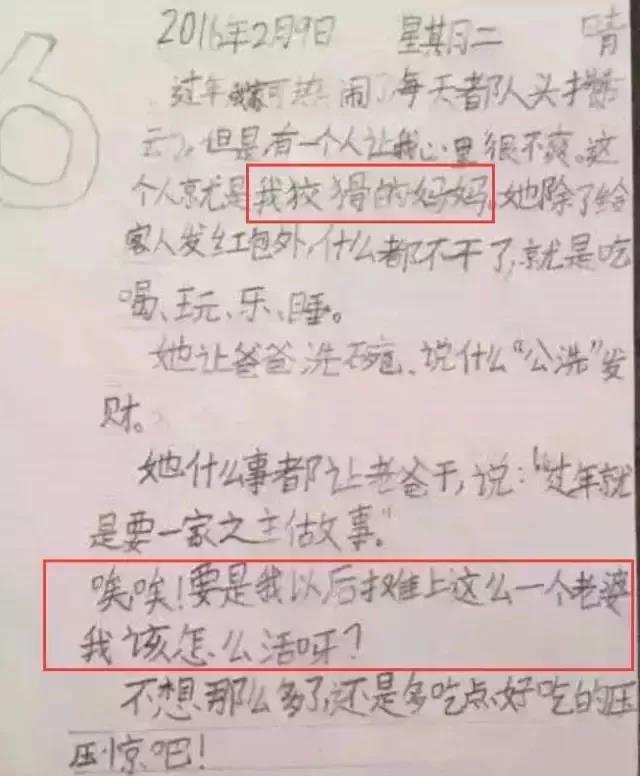 2016年2月9日 星期二 晴
过年我家可热闹了每天都队头挤
云),但是,有一个人让我心里很不爽。这
个人就是我狡猾的妈妈,她除了给
客人发红包外,什么都不干了,就是吃
喝、玩、乐、睡。
她让爸爸洗碗、说什么“公洗”发
财。
她什么事都让老爸干,说:“过年就
是要一家之主做故事。”
唉唉!要是我以后摊上这么一个老婆
我该怎么活呀?
不想那么多了,还是多吃点好吃的压
压惊吧!